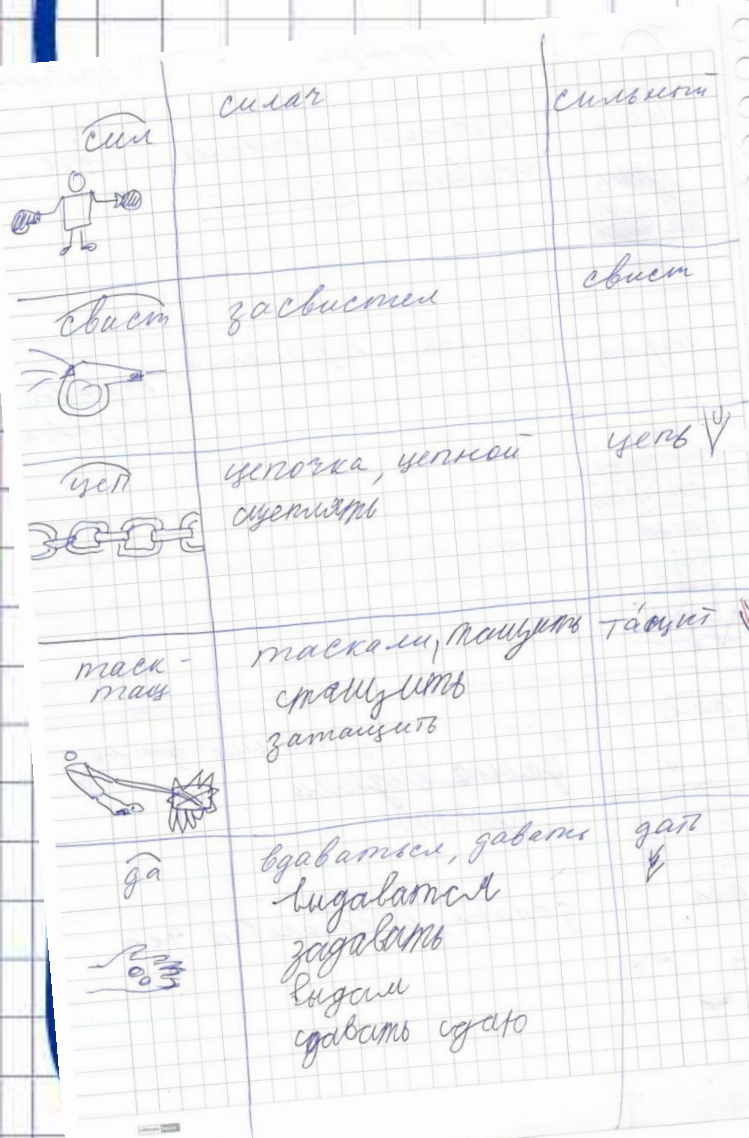 сил силач сильный
свист засвистел свист
цеп цепочка, цепной цепь
сцеплять
таск- таскали, тащить та́щит
тащ стащить
затащить
да вдаваться, давать дать
выдаватся
задавать
выдал
сдавать сдаю